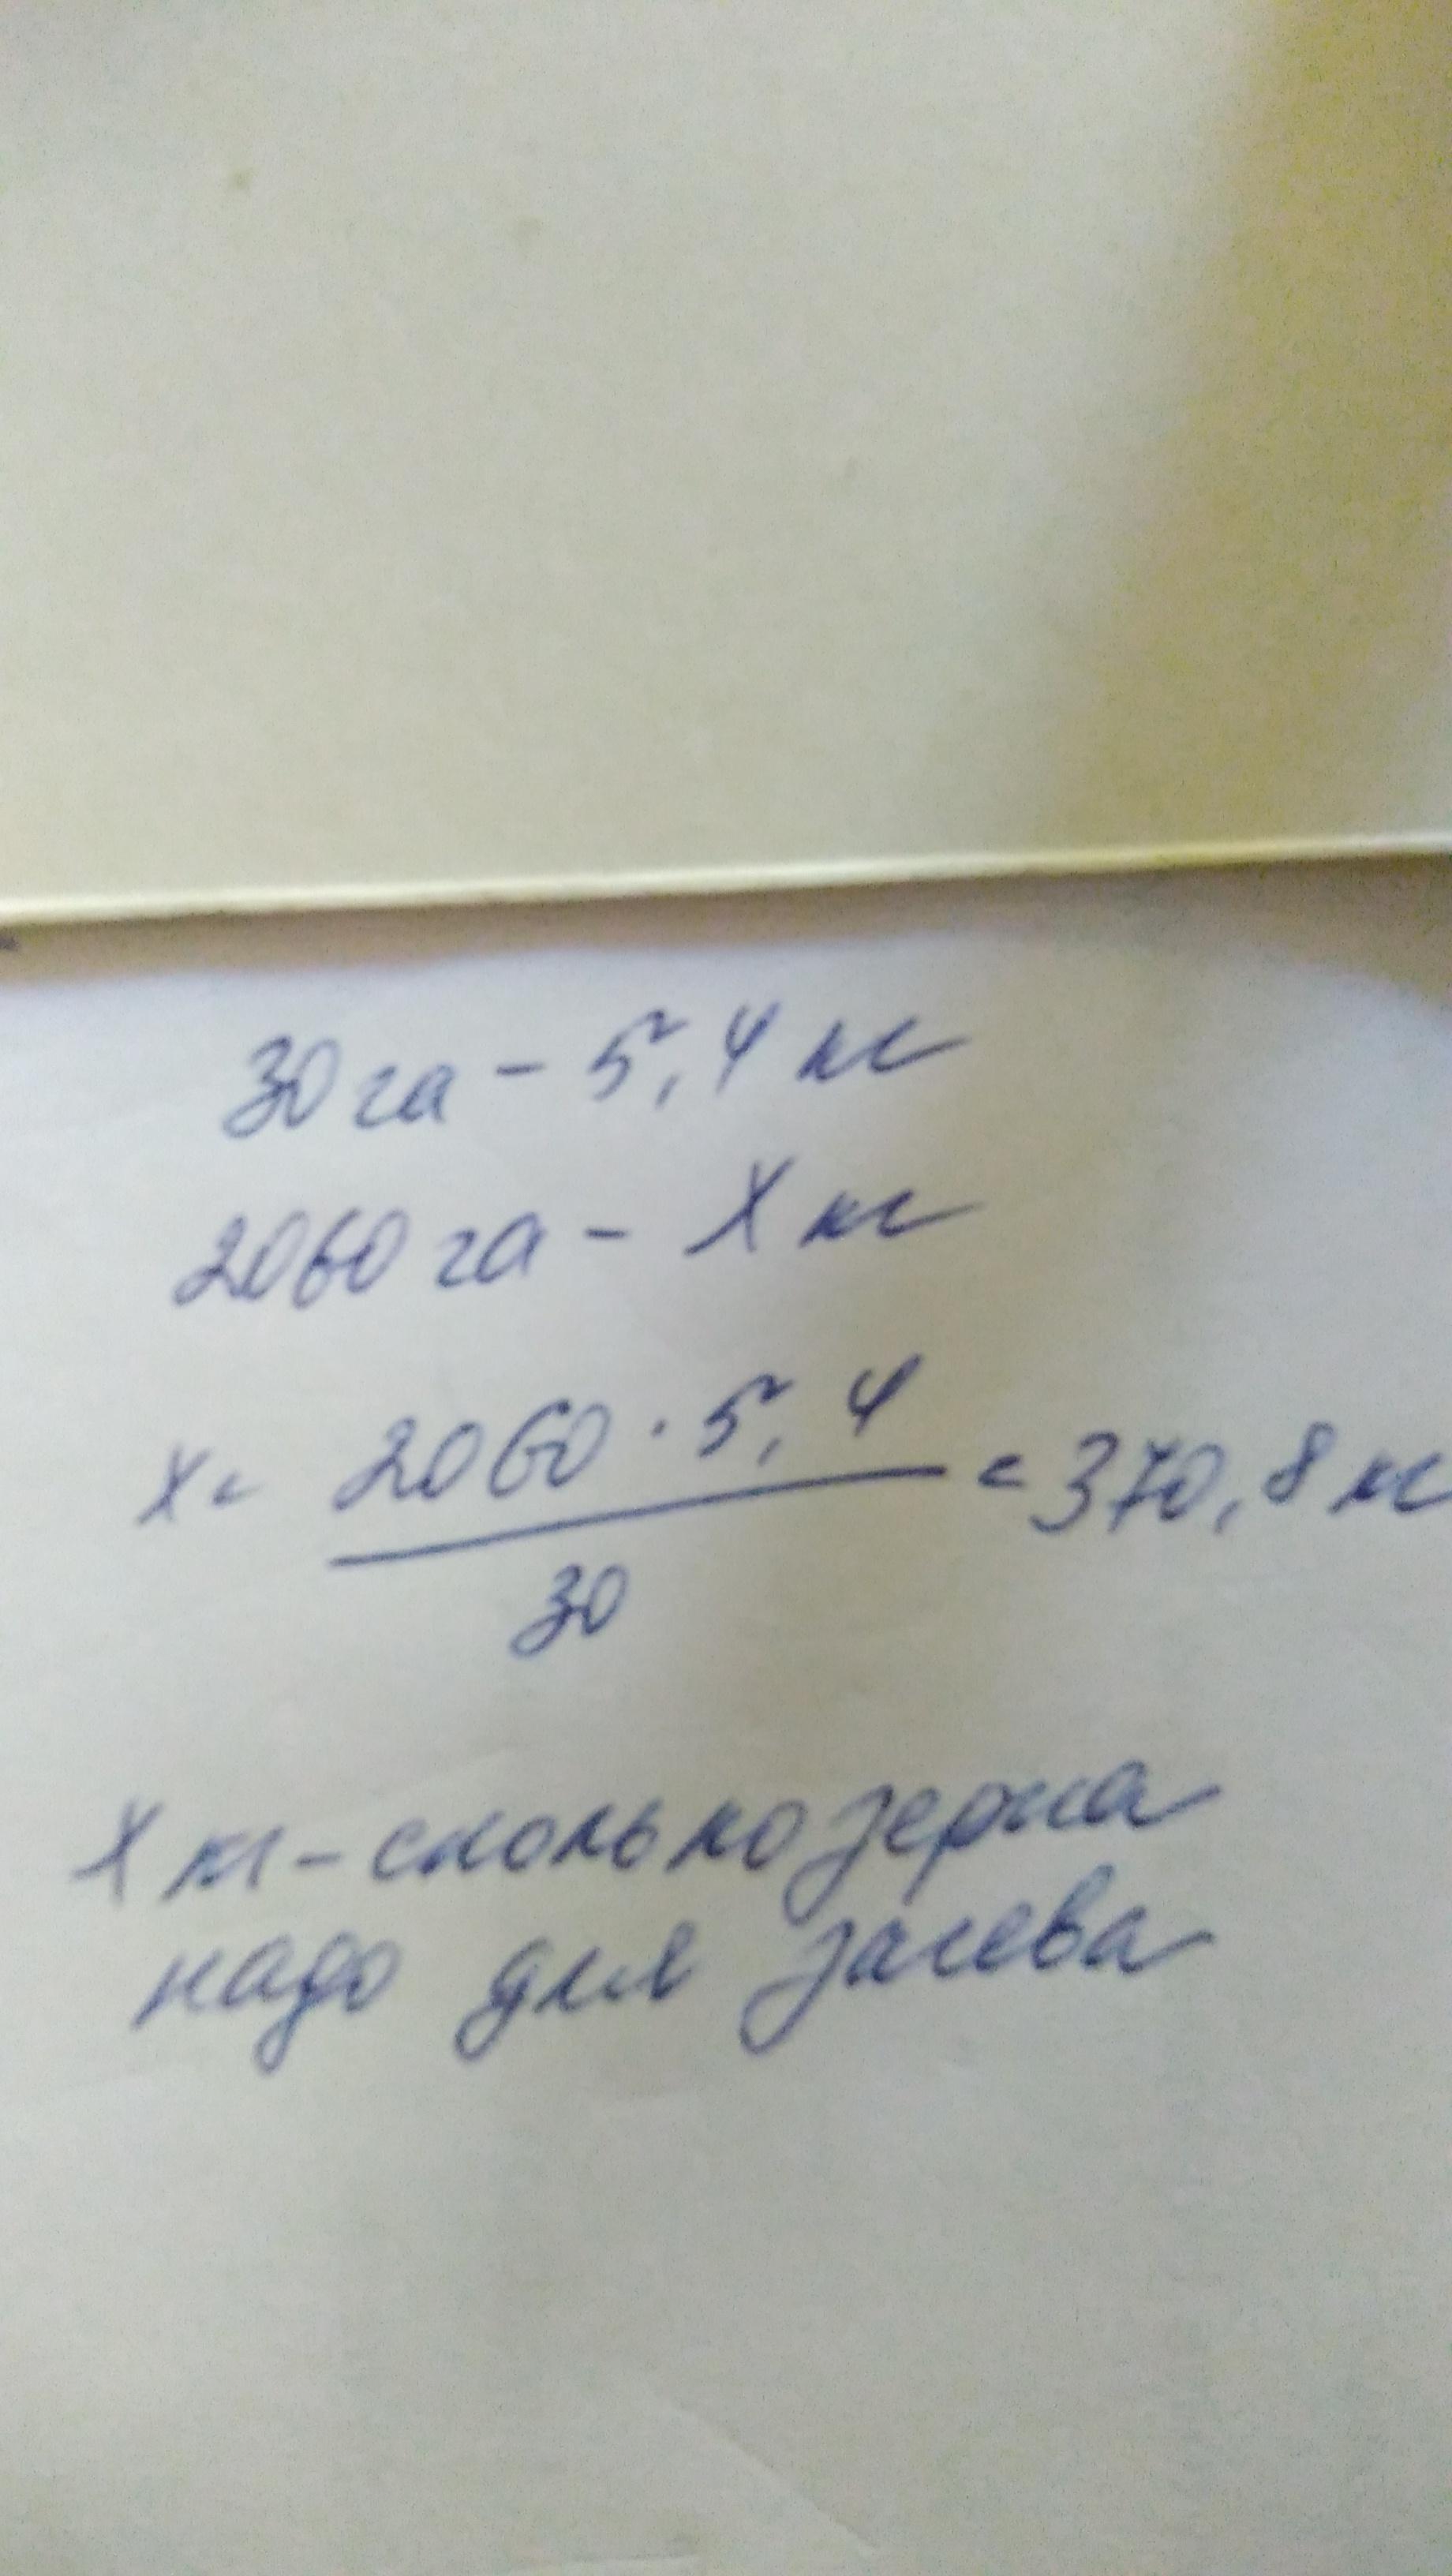 30 га - 5,4 кг
2060 га - X кг
X = 2060 · 5,4 / 30 = 370,8 кг
X кг - сколько зерна
надо для засева